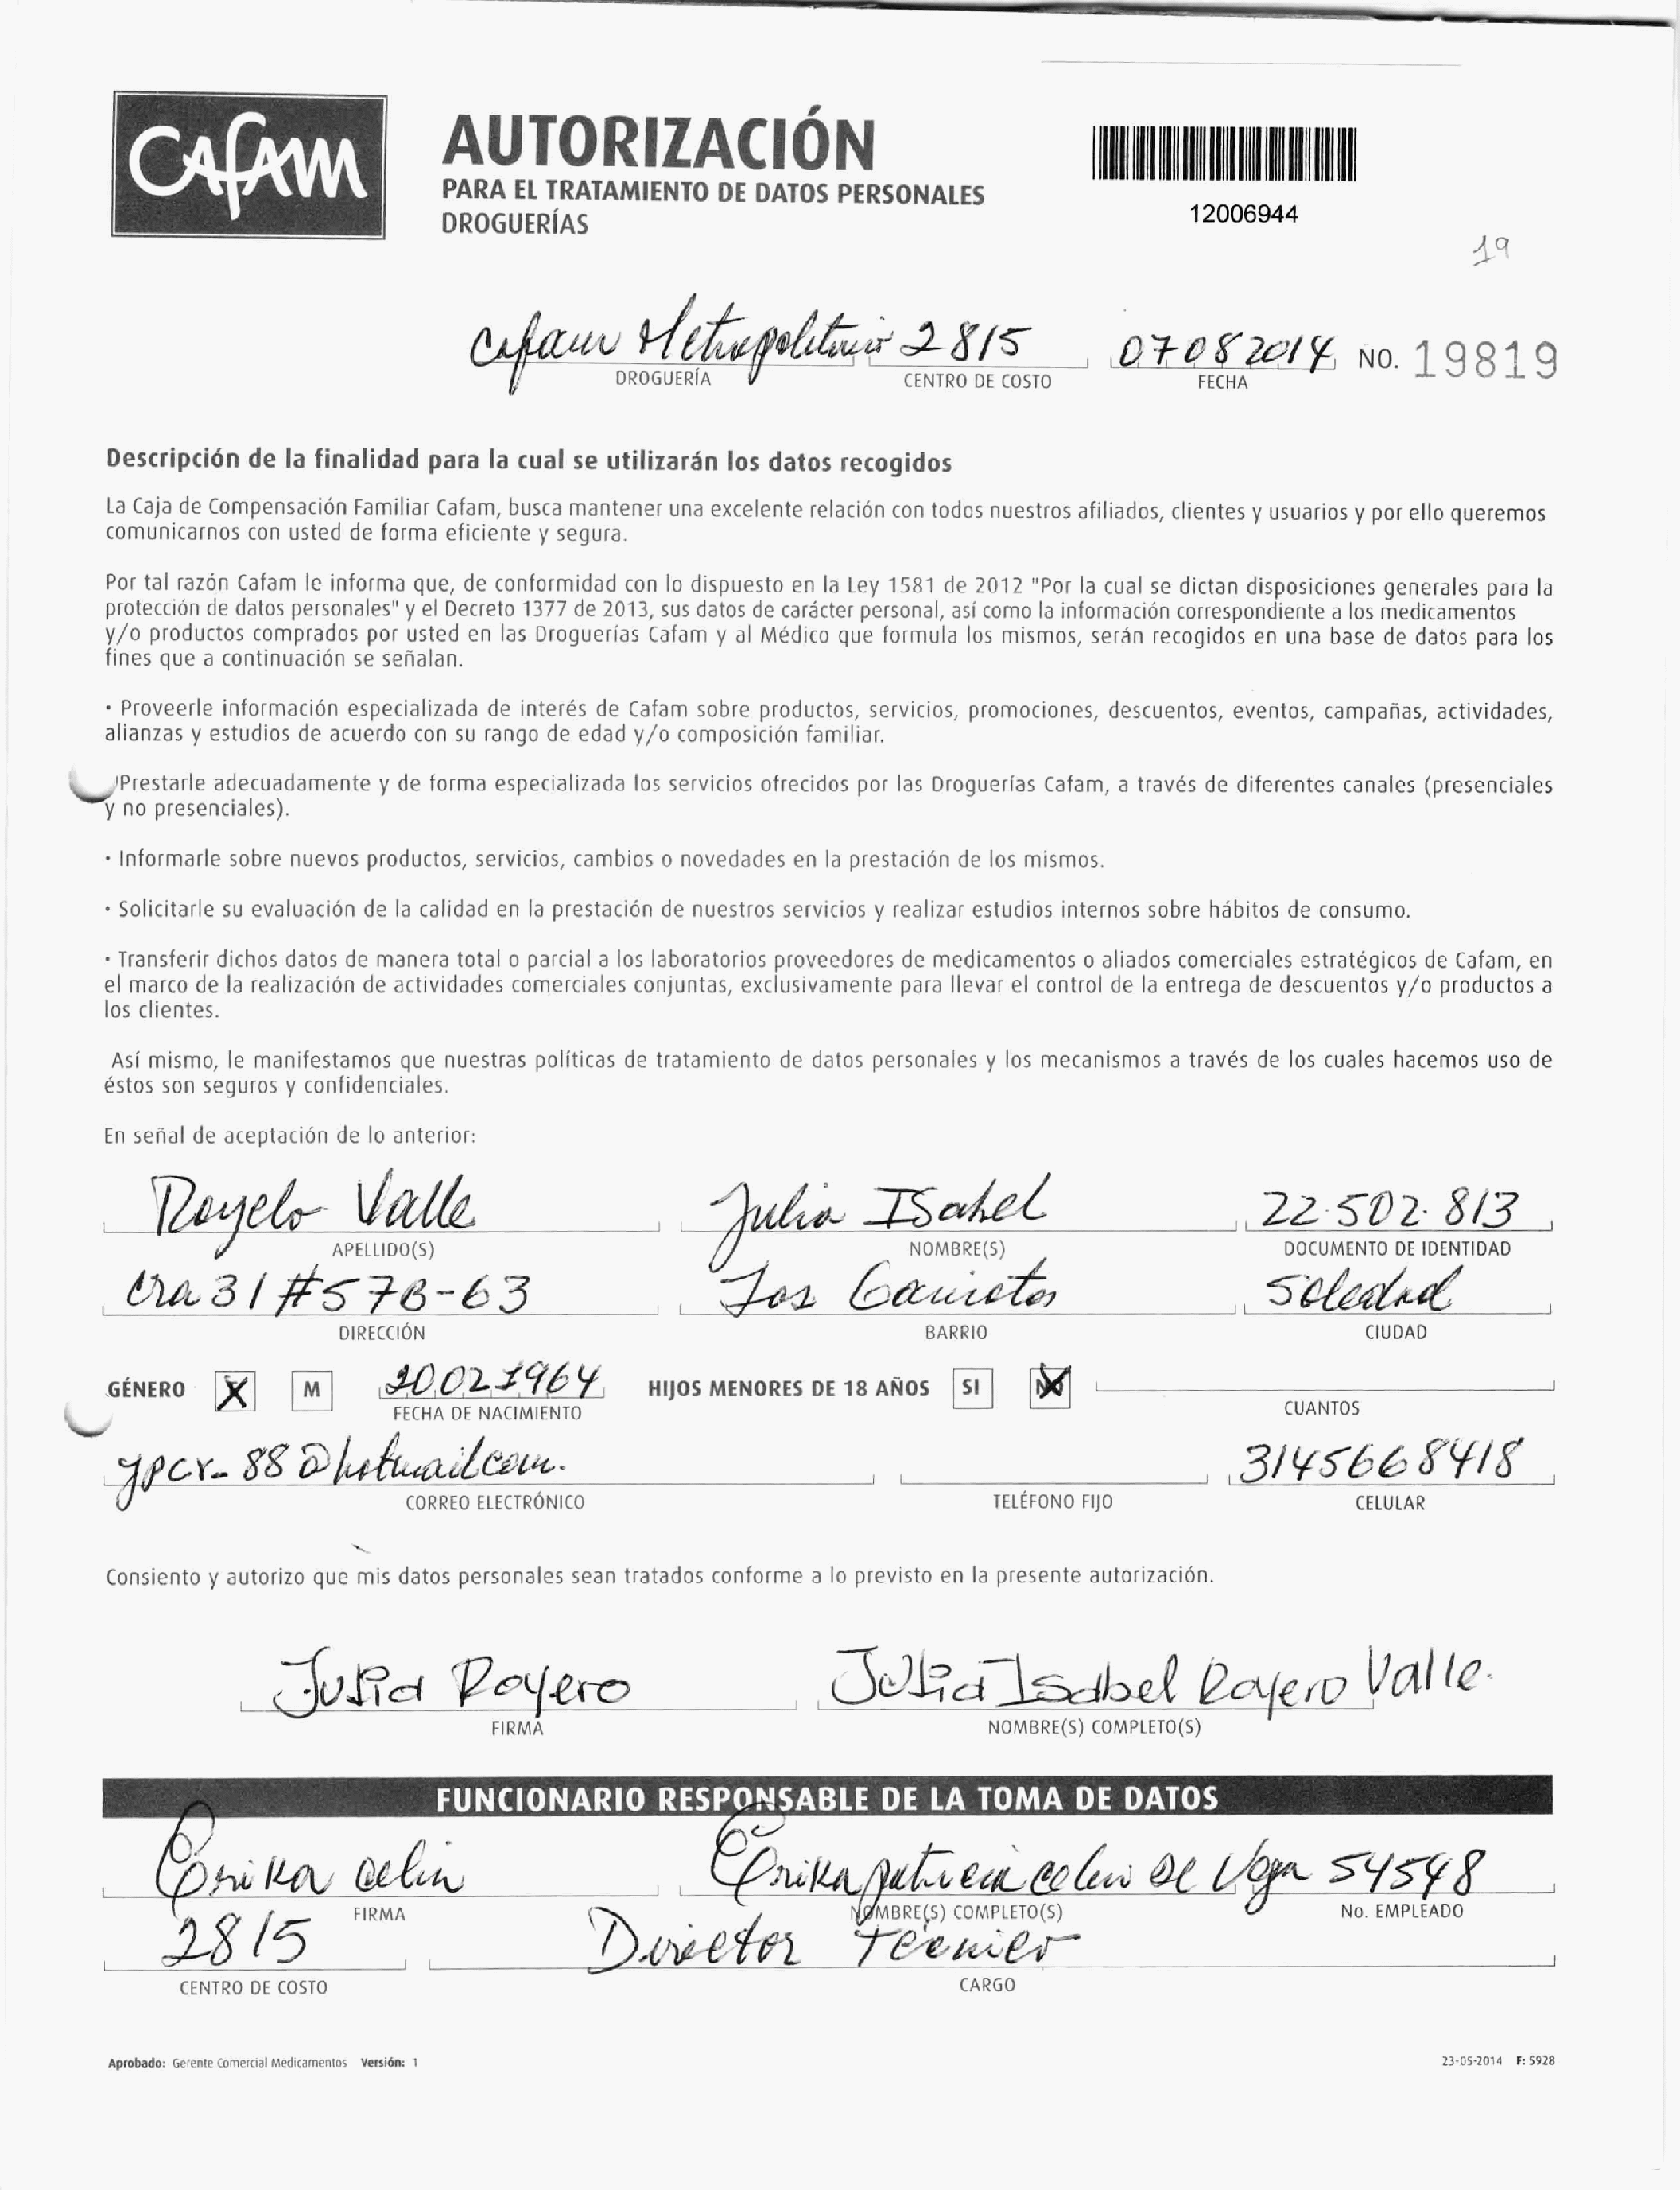 CAFAM
AUTORIZACIÓN
PARA EL TRATAMIENTO DE DATOS PERSONALES
DROGUERÍAS
12006944
19
Cafam Metropolitano 2815 07082014 NO. 19819
DROGUERÍA CENTRO DE COSTO FECHA
Descripción de la finalidad para la cual se utilizarán los datos recogidos
La Caja de Compensación Familiar Cafam, busca mantener una excelente relación con todos nuestros afiliados, clientes y usuarios y por ello queremos
comunicarnos con usted de forma eficiente y segura.
Por tal razón Cafam le informa que, de conformidad con lo dispuesto en la Ley 1581 de 2012 "Por la cual se dictan disposiciones generales para la
protección de datos personales" y el Decreto 1377 de 2013, sus datos de carácter personal, así como la información correspondiente a los medicamentos
y/o productos comprados por usted en las Droguerías Cafam y al Médico que formula los mismos, serán recogidos en una base de datos para los
fines que a continuación se señalan.
· Proveerle información especializada de interés de Cafam sobre productos, servicios, promociones, descuentos, eventos, campañas, actividades,
alianzas y estudios de acuerdo con su rango de edad y/o composición familiar.
Prestarle adecuadamente y de forma especializada los servicios ofrecidos por las Droguerías Cafam, a través de diferentes canales (presenciales
y no presenciales).
· Informarle sobre nuevos productos, servicios, cambios o novedades en la prestación de los mismos.
· Solicitarle su evaluación de la calidad en la prestación de nuestros servicios y realizar estudios internos sobre hábitos de consumo.
· Transferir dichos datos de manera total o parcial a los laboratorios proveedores de medicamentos o aliados comerciales estratégicos de Cafam, en
el marco de la realización de actividades comerciales conjuntas, exclusivamente para llevar el control de la entrega de descuentos y/o productos a
los clientes.
Así mismo, le manifestamos que nuestras políticas de tratamiento de datos personales y los mecanismos a través de los cuales hacemos uso de
éstos son seguros y confidenciales.
En señal de aceptación de lo anterior:
Royelo Valle Julia Isabel 22.502.813
APELLIDO(S) NOMBRE(S) DOCUMENTO DE IDENTIDAD
Cra 31 #57B-63 Los Soledad
DIRECCIÓN BARRIO CIUDAD
GÉNERO X M 20021964 HIJOS MENORES DE 18 AÑOS SI NO
FECHA DE NACIMIENTO CUANTOS
ypcr-88@hotmail.com. 3145668418
CORREO ELECTRÓNICO TELÉFONO FIJO CELULAR
Consiento y autorizo que mis datos personales sean tratados conforme a lo previsto en la presente autorización.
Julia Royero Julia Isabel Royero Valle.
FIRMA NOMBRE(S) COMPLETO(S)
FUNCIONARIO RESPONSABLE DE LA TOMA DE DATOS
Erika celin Erika patricia celin de Vega 54548
FIRMA NOMBRE(S) COMPLETO(S) No. EMPLEADO
2815 Director Tecnico
CENTRO DE COSTO CARGO
Aprobado: Gerente Comercial Medicamentos Versión: 1 23-05-2014 F: 5928